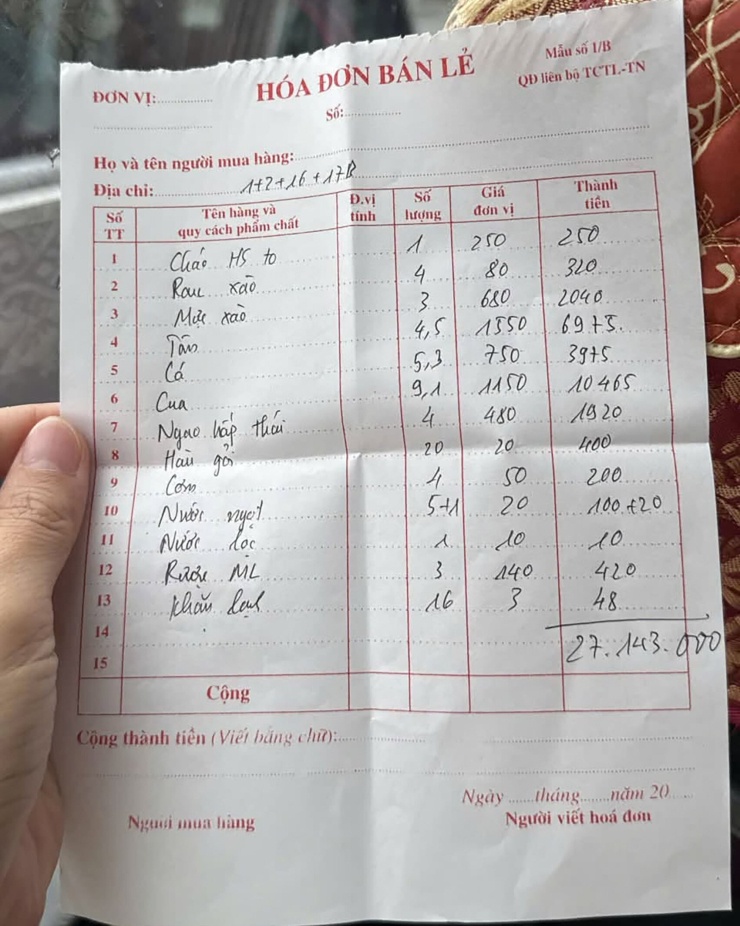 HÓA ĐƠN BÁN LẺ
Mẫu số 1/B
QĐ liên bộ TCTL-TN
ĐƠN VỊ:
Số:
Họ và tên người mua hàng:
Địa chỉ: 1+2+16+17B
Số TT Tên hàng và quy cách phẩm chất Đ.vị tính Số lượng Giá đơn vị Thành tiền
1 Cháo HS to 1 250 250
2 Rau xào 4 80 320
3 Mực xào 3 680 2040
4 Tôm 4,5 1550 6975
5 Cá 5,3 750 3975
6 Cua 9,1 1150 10465
7 Ngao hấp thái 4 480 1920
8 Hàu gỏi 20 20 400
9 Cơm 4 50 200
10 Nước ngọt 5+1 20 100+20
11 Nước lọc 1 10 10
12 Rượu ML 3 140 420
13 Khăn lạnh 16 3 48
14 27.143.000
15
Cộng
Cộng thành tiền (Viết bằng chữ):
Ngày ......tháng.......năm 20.....
Người mua hàng Người viết hoá đơn